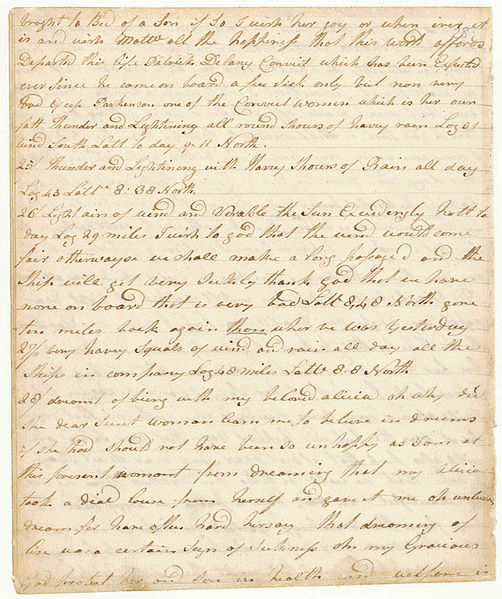 brought to Bed of a Son if So I wish her joy or when ever it
is and wish Matw all the happiness that this world affords
Departed this life Patrick Delany Convict which has been Expected
ever Since he come on board a few Sick only but non very
bad Except Parkenson one of the Convict women which is her own
falt Thunder and Lightning all round Showrs of heavy rain Log 61
wind South Latt to day 9 " 11 North.
25 Thunder and Lightining with Heavy Showrs of Rain all day
Log 43 Lattd 8 : 38 North
26 Light airs of wind and Verable the Sun Exceedingly hott to
day Log 29 miles I wish to god that the wind would come
fair otherwayse we shall make a long passage and the
Ship will get very Sickly thank god that we have
none on board that is very bad Latt 8,48 North gone
ten miles back again than wher we was yesterday
27 very heavey Squals of wind and rain all day all the
Ships in company Log 48 miles Lattd 8:8 North
28 dreamt of being with my beloved alicia oh why did
She dear Sweet woman learn me to beleve in dreams
if she had Should not have been so unhappy as I am at
this present womont from dreaming that my alicia
took a dead louse from herself and gave it me oh unlucky
dream for have often hard her say that dreaming of
lice was a certain Sign of Sickness oh my Gracious
God protect her and Son in health and